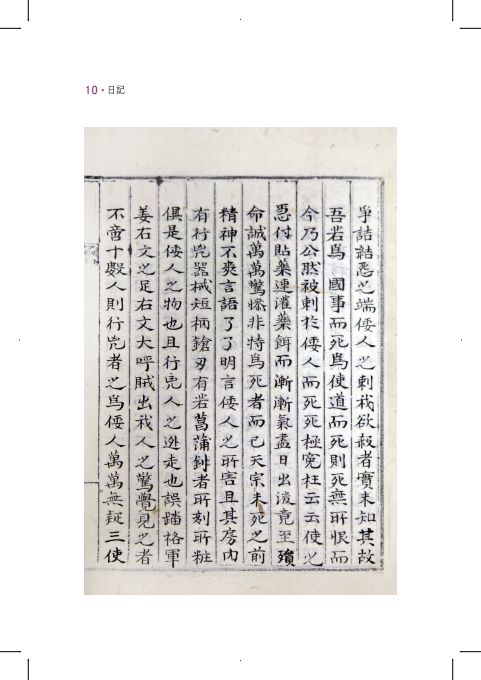 10 · 日記
爭詰結惡之端倭人之刺我欲殺者實未知其故
吾若爲 國事而死爲使道而死則死無所恨而
今乃公然被刺於倭人而死死極寃枉云云使之
急付貼藥連灌藥餌而漸漸氣盡日出後竟至殞
命誠萬萬驚慘非特爲死者而已天宗未死之前
精神不爽言語了了明言倭人之所害且其房內
有行兇器械短柄鎗刃有若菖蒲鋒者所刻所粧
俱是倭人之物也且行兇人之逃走也誤踏格軍
姜右文之足右文大呼賊出我人之驚覺見之者
不啻十數人則行兇者之爲倭人萬萬無疑三使